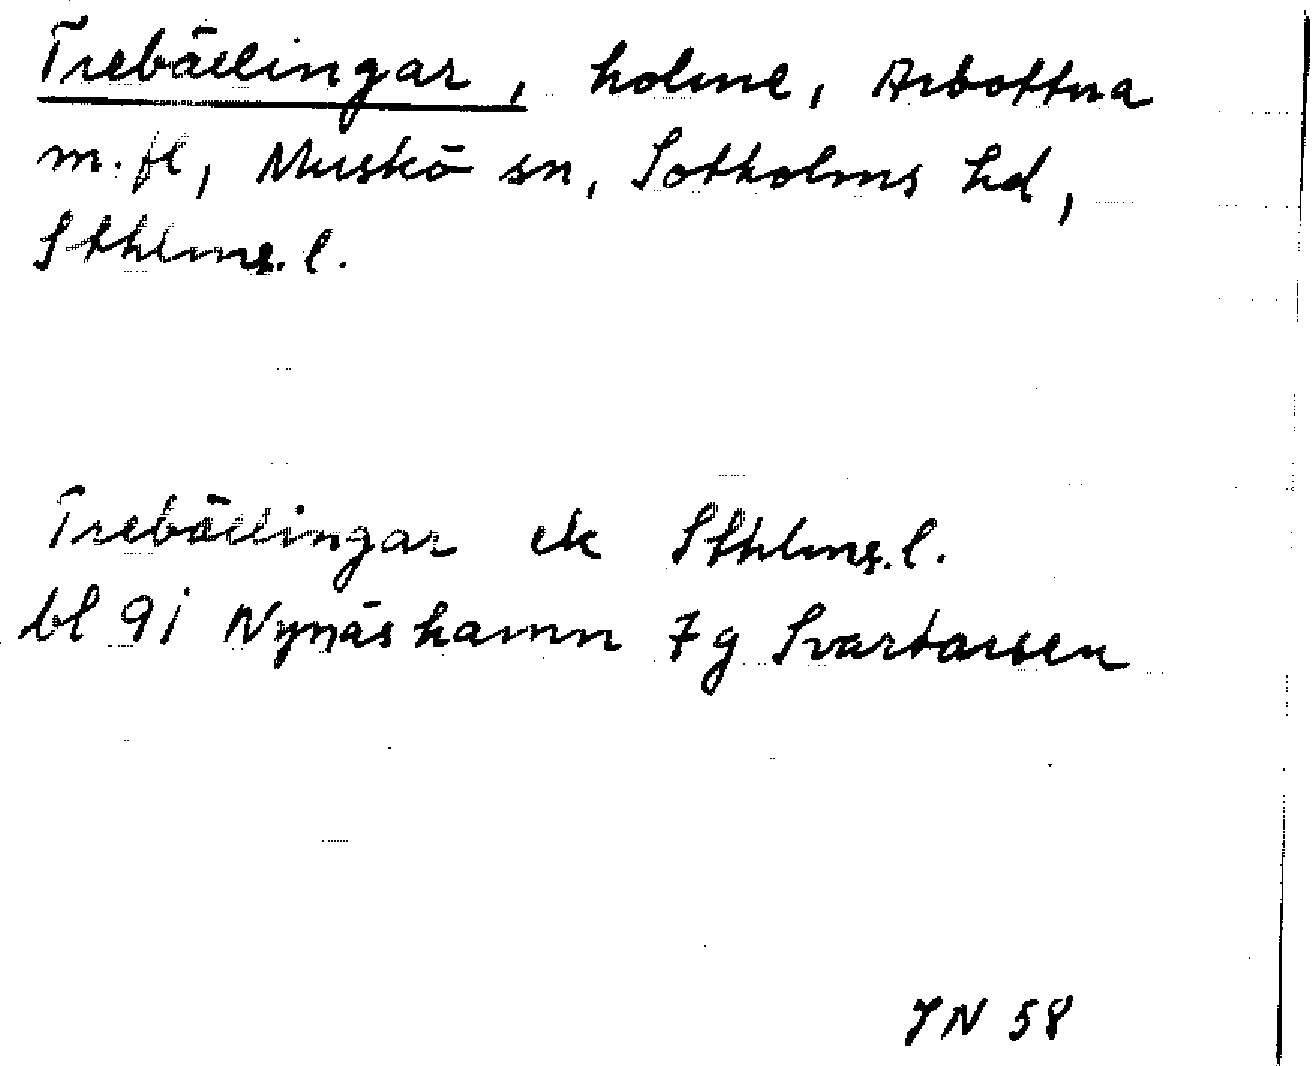 Trebällingar, holme, Arbottna
m.fl, Muskö sn, Sotholms hd,
Sthlms. l.
Trebällingar ek Sthlms. l.
bl 91 Nynäshamn 7g Svartarsen
JN 58